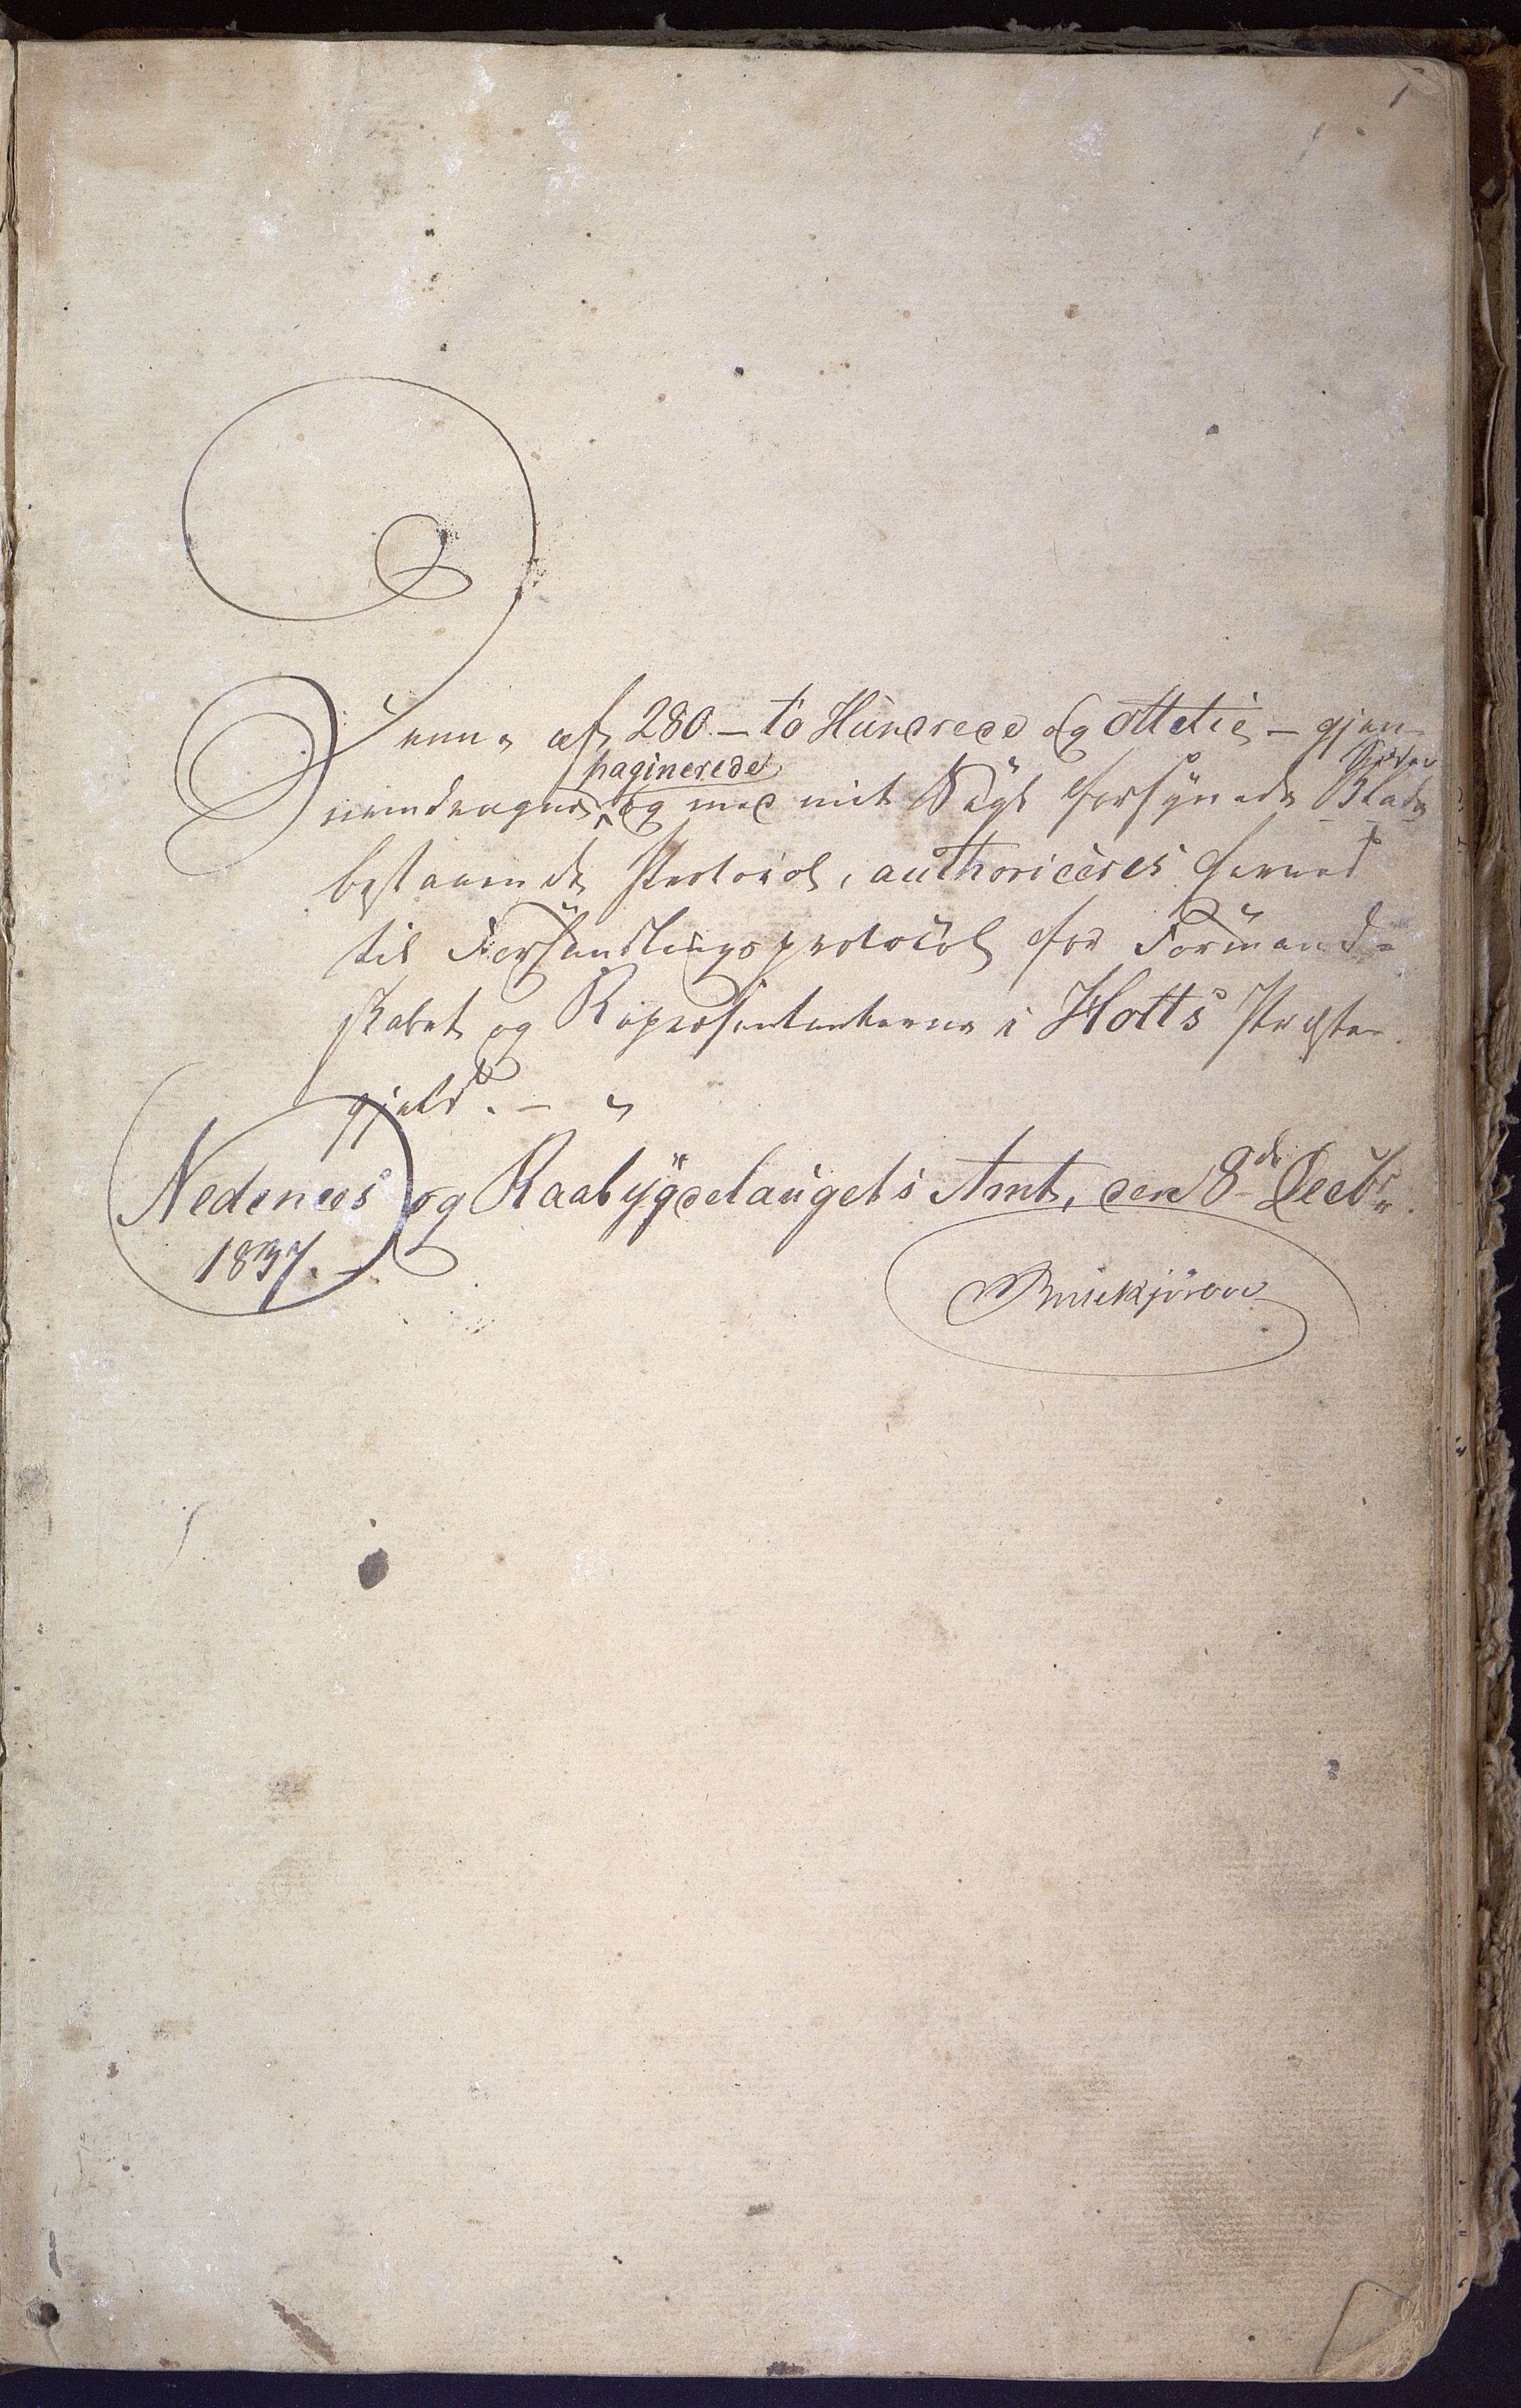 1
Denne af 280 – to Hundrede og ottetie – gjen-
nemdragne, paginerede og med mit Segl forsynede Blade Sider
bestaaende Protocol, authoriceres herved
til Forhandlingsprotocol for Formand-
skabet og Repræsentanterne i Holt's Præste-
gjeld. –
Nedenæs og Raabygdelaugets Amt, den 8de Decbr.
1837. –